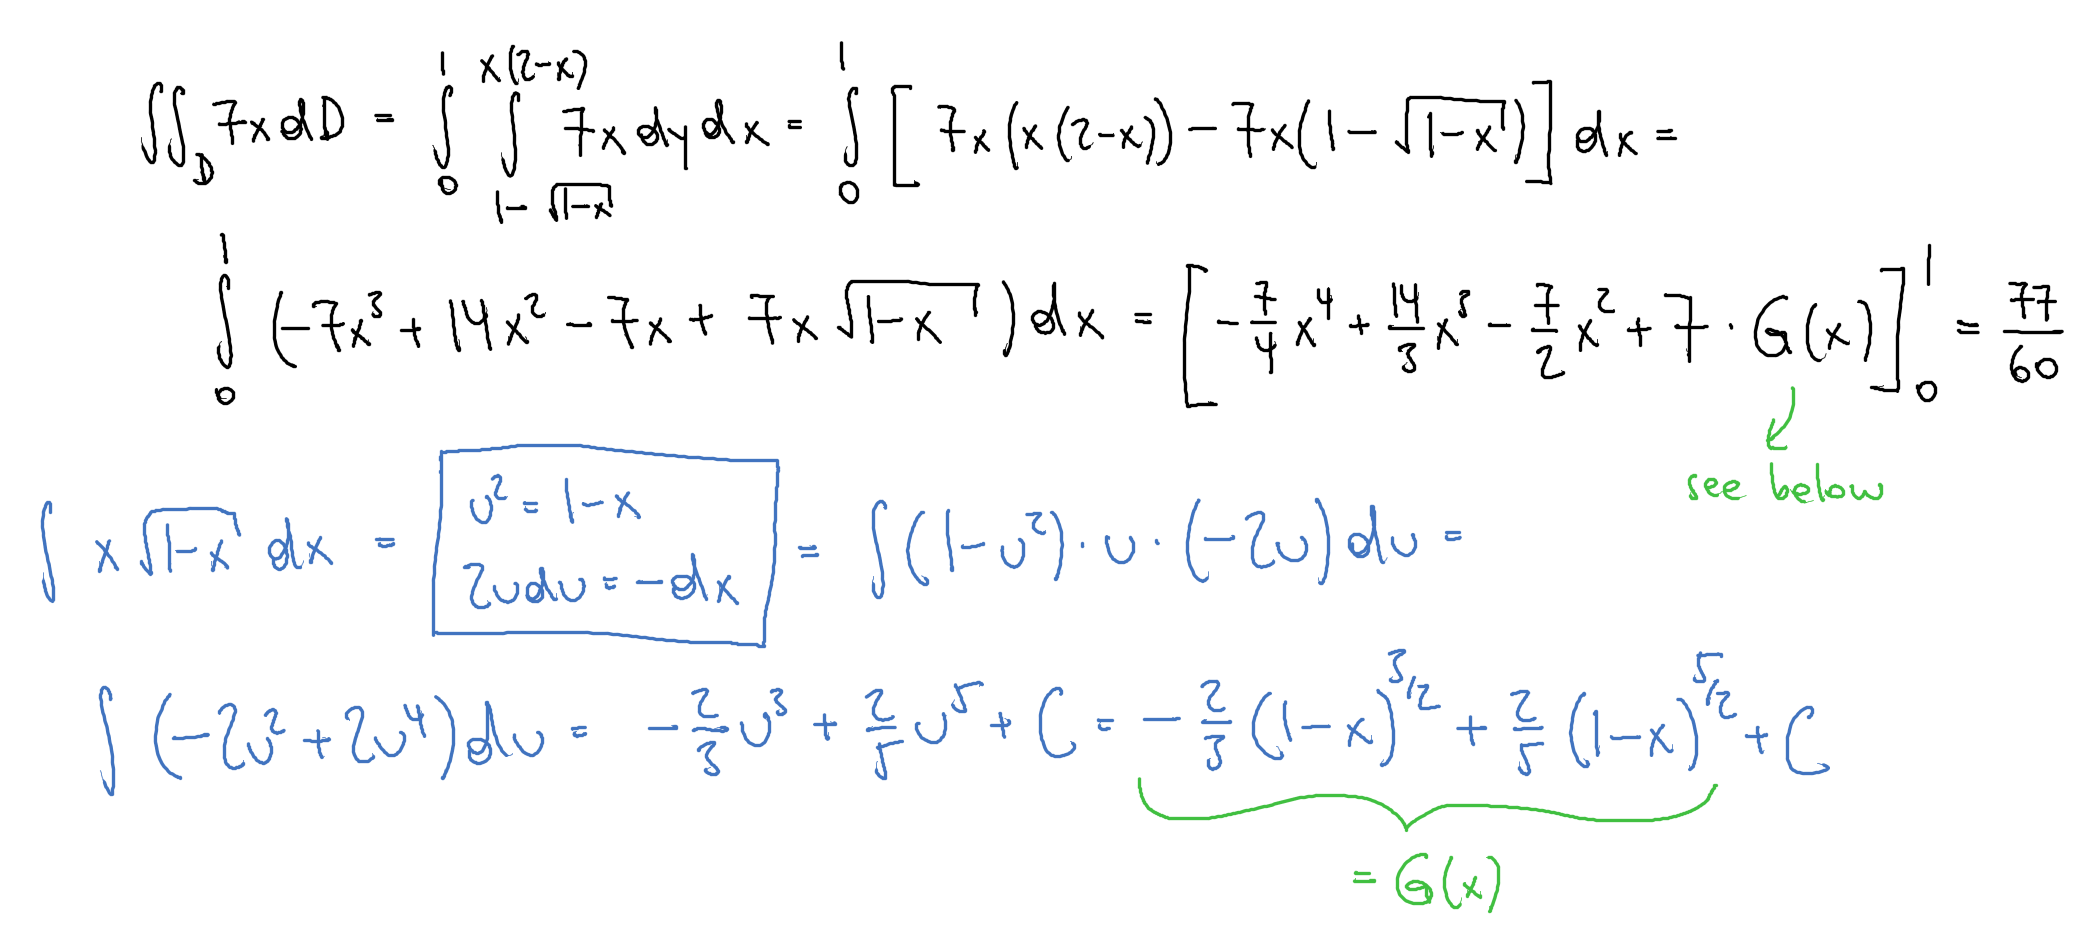 ∬_D 7x dD = ∫_0^1 ∫_{1-√(1-x)}^{x(2-x)} 7x dy dx = ∫_0^1 [7x(x(2-x)) - 7x(1-√(1-x))] dx =
∫_0^1 (-7x^3 + 14x^2 - 7x + 7x√(1-x)) dx = [-7/4 x^4 + 14/3 x^3 - 7/2 x^2 + 7 · G(x)]_0^1 = 77/60
see below
∫ x√(1-x) dx = u^2 = 1-x 2udu = -dx = ∫(1-u^2)·u·(-2u) du =
∫(-2u^2 + 2u^4) du = -2/3 u^3 + 2/5 u^5 + C = -2/3 (1-x)^{3/2} + 2/5 (1-x)^{5/2} + C
= G(x)